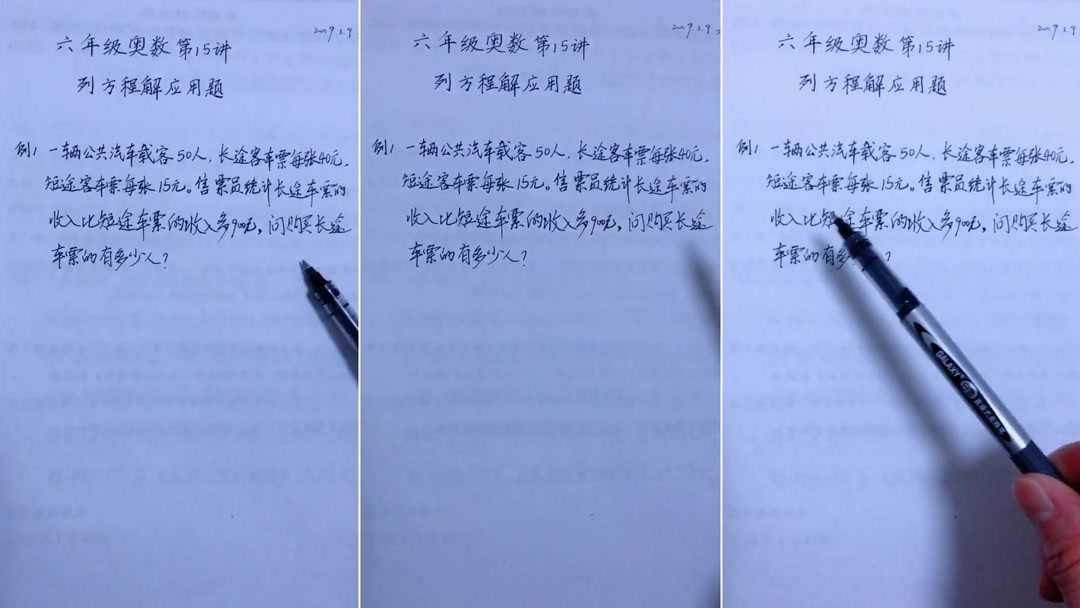 2019.3.9
六年级奥数第15讲
列方程解应用题
例1 一辆公共汽车载客50人，长途客车票每张40元，
短途客车票每张15元。售票员统计长途车票的
收入比短途车票的收入多900元，问购买长途
车票的有多少人？
2019.3.9
六年级奥数第15讲
列方程解应用题
例1 一辆公共汽车载客50人，长途客车票每张40元，
短途客车票每张15元。售票员统计长途车票的
收入比短途车票的收入多900元，问购买长途
车票的有多少人？
2019.3.9
六年级奥数第15讲
列方程解应用题
例1 一辆公共汽车载客50人，长途客车票每张40元，
短途客车票每张15元。售票员统计长途车票的
收入比短途车票的收入多900元，问购买长途
车票的有多？
GALAXY